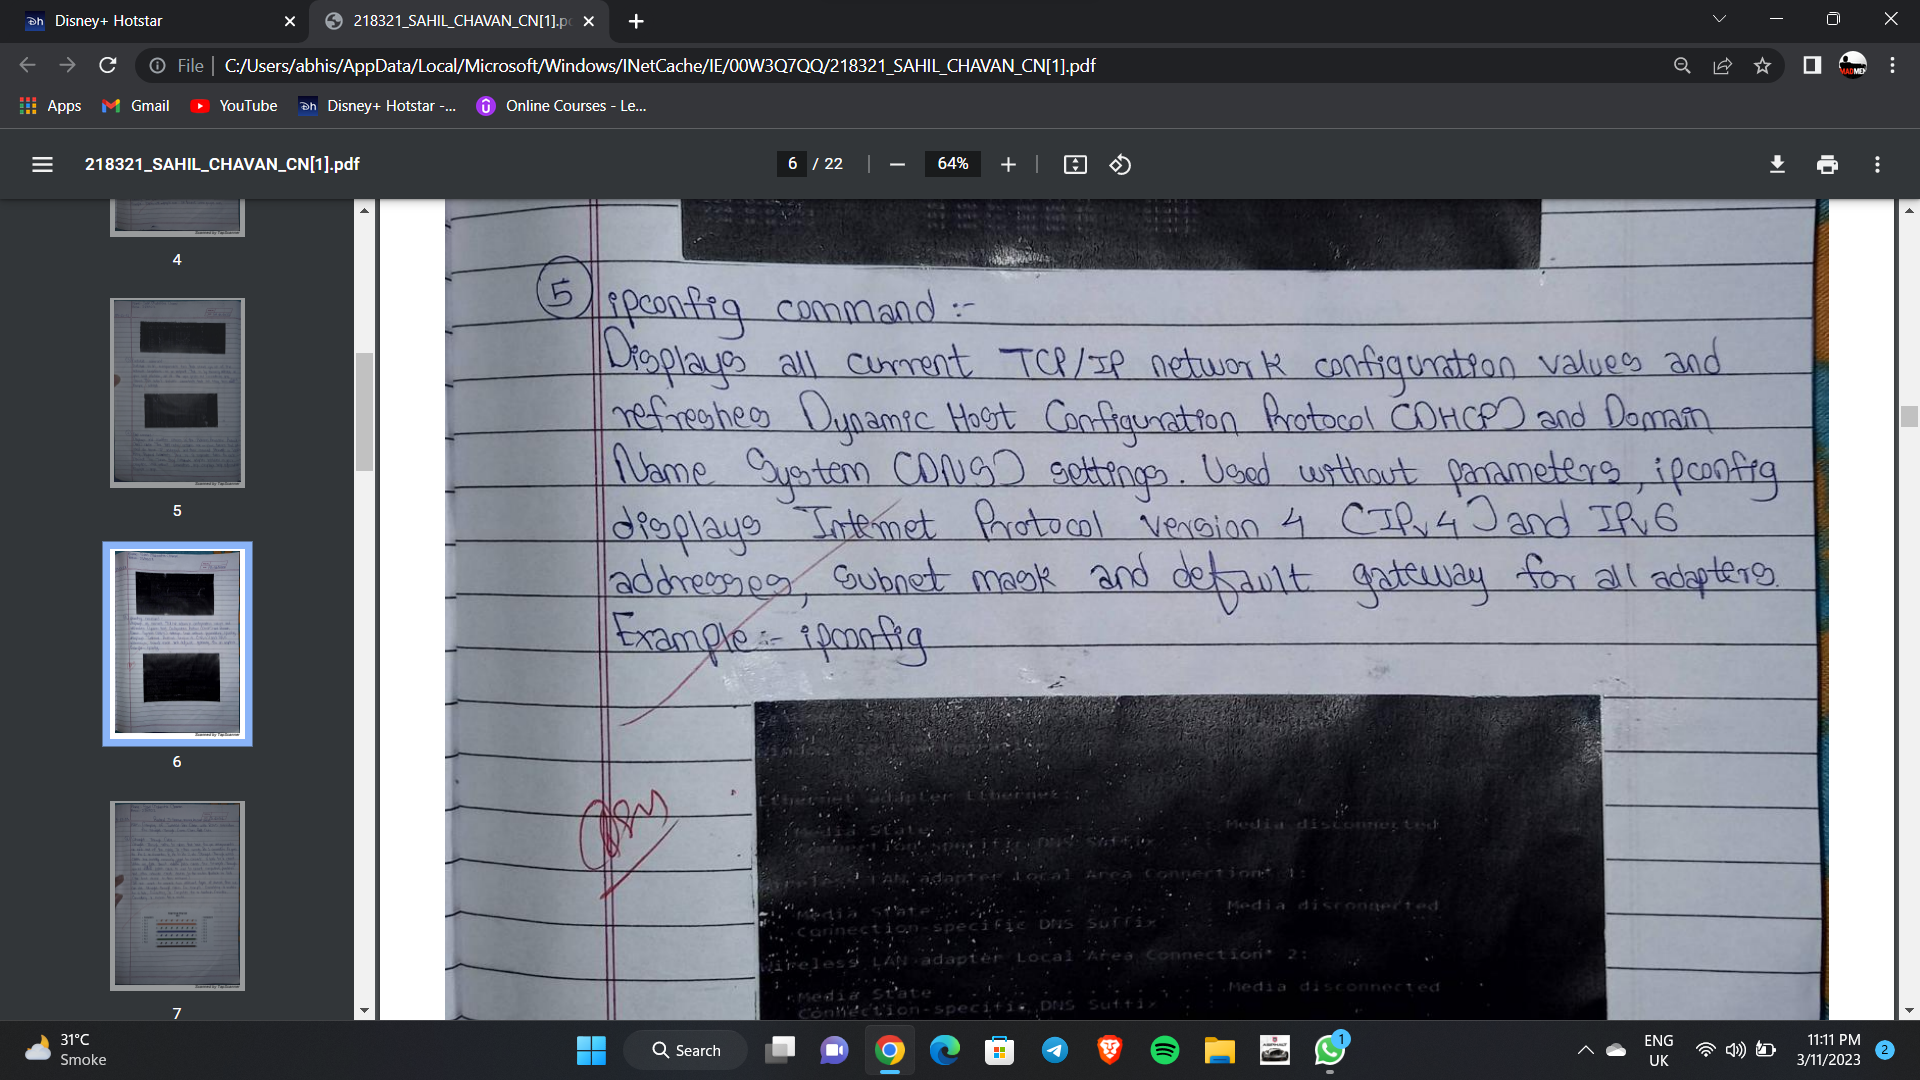 Disney+ Hotstar
218321_SAHIL_CHAVAN_CN[1].p
File
C:/Users/abhis/AppData/Local/Microsoft/Windows/INetCache/IE/00W3Q7QQ/218321_SAHIL_CHAVAN_CN[1].pdf
Apps
Gmail
YouTube
Disney+ Hotstar -...
Online Courses - Le...
218321_SAHIL_CHAVAN_CN[1].pdf
6 / 22
64%
4
5
6
7
5 ipconfig command :-
Displays all current TCP/IP network configuration values and
refreshes Dynamic Host Configuration Protocol (DHCP) and Domain
Name System (DNS) settings. Used without parameters, ipconfig
displays Internet Protocol version 4 (IPv4) and IPv6
addresses, subnet mask and default gateway for all adapters.
Example :- ipconfig
Ethernet adapter Ethernet:
Media State : Media disconnected
Connection-specific DNS Suffix :
Wireless LAN adapter Local Area Connection* 1:
Media State : Media disconnected
Connection-specific DNS Suffix :
Wireless LAN adapter Local Area Connection* 2:
Media State : Media disconnected
Connection-specific DNS Suffix :
31°C
Smoke
Search
1
ENG
UK
11:11 PM
3/11/2023
2